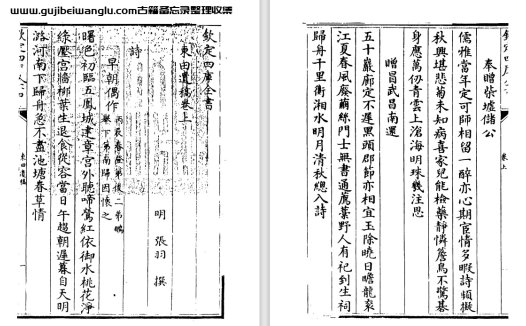 www.gujibeiwanglu.com古籍备忘录整理收集
欽定四庫全書
東田遺稿卷上
明 張羽 撰
詩
早朝偶作 丙辰春登第後二弟鵬
舉下第南歸因懷之
曙色初臨五鳳城建章宫外聽啼鶯紅依御水桃花淨
綠壓宫牆柳葉生退食從容當日午趨朝遲暮自天明
潞河南下歸舟急不盡池塘春草情
東田遺稿
卷上
奉贈柴墟儲公
儒雅當年定可師相留一醉亦心期官情多暇詩頻擬
秋興堪悲菊未知病喜家兒能檢藥靜憐簷鳥不驚棊
身應萬仞青雲上滄海明珠幾注思
贈昌武昌南還
五十巖廊定不遲黑頭郎節亦相宜玉除曉日瞻龍衮
江夏春風發繭絲門士無書通薦藁野人有祀到生祠
歸舟千里衡湘水明月清秋總入詩